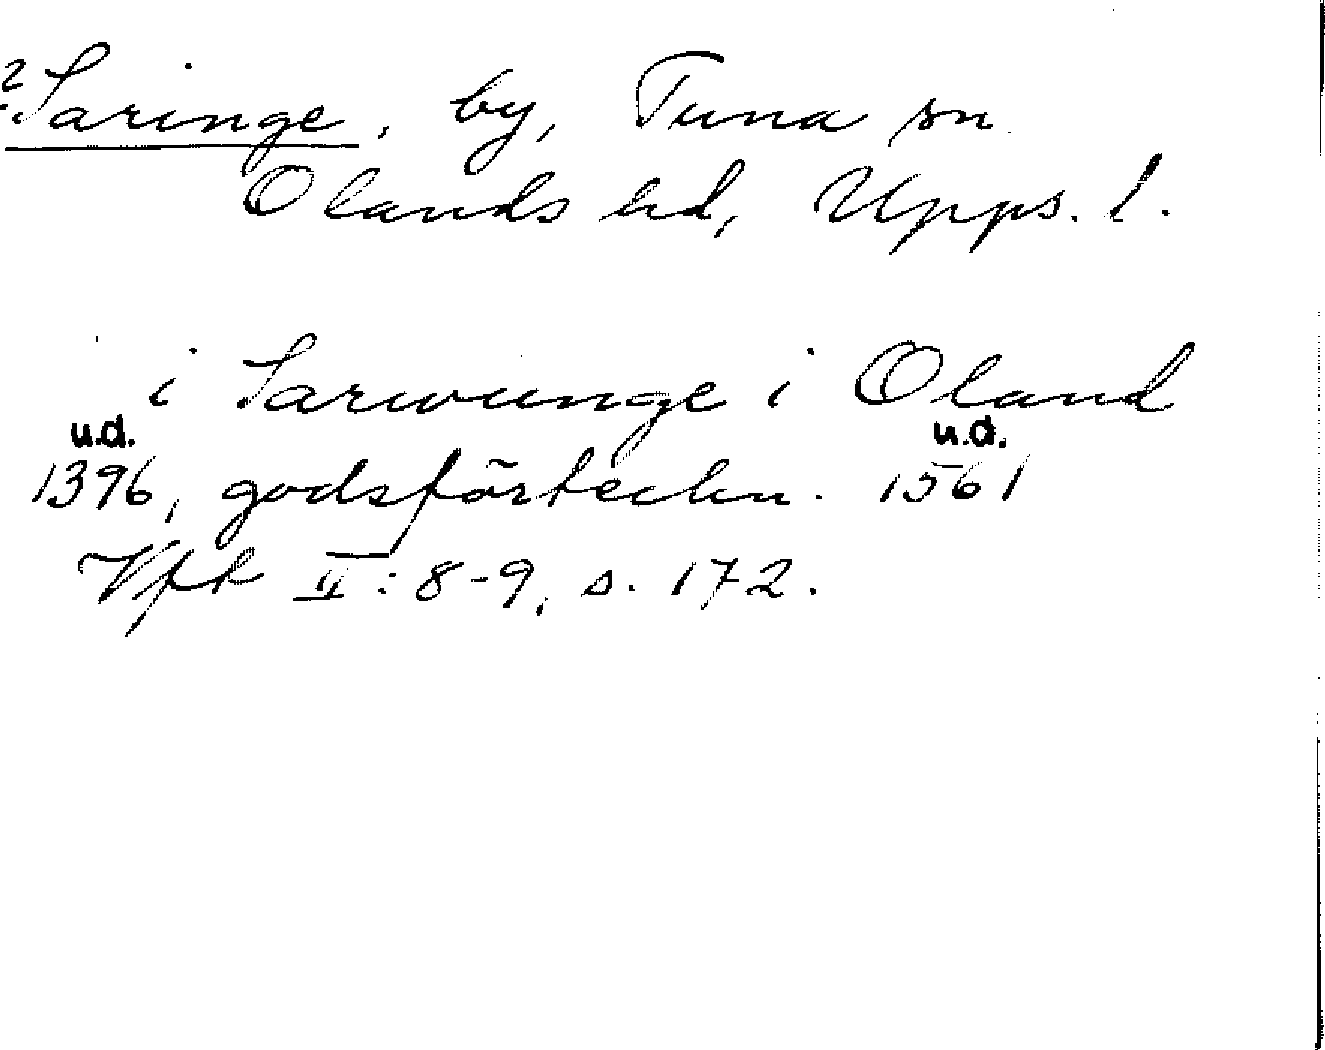 ? Saringe, by, Tuna sn
Olands hd, Upps. l.
i Sarwunge i Oland
u.d. u.d.
1396, godsförteckn. 1561
Vfk II: 8-9, s. 172.